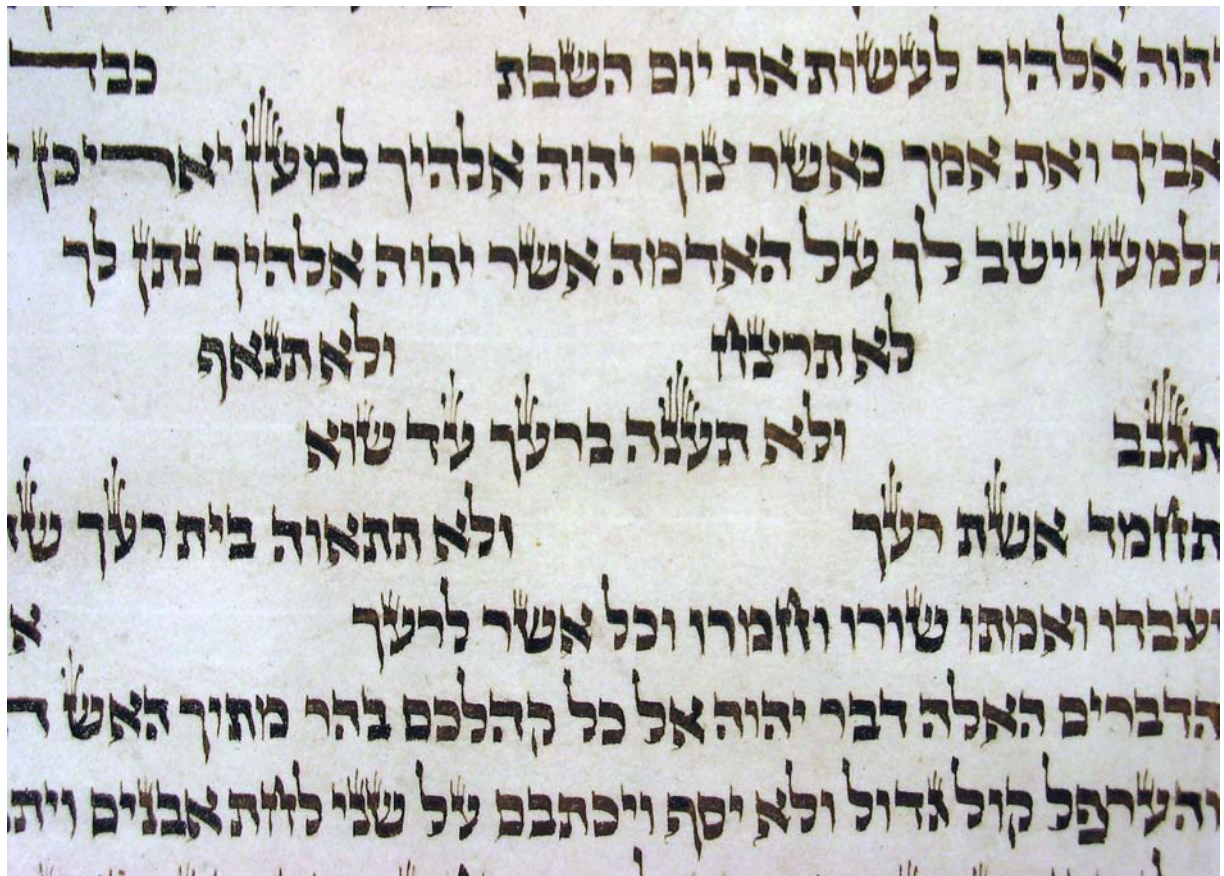 יהוה אלהיך לעשות את יום השבת כבד
אביך ואת אמך כאשר צוך יהוה אלהיך למען יאריכן
ולמען ייטב לך על האדמה אשר יהוה אלהיך נתן לך
לא תרצח ולא תנאף
תגנב ולא תענה ברעך עד שוא
תחמד אשת רעך ולא תתאוה בית רעך
ועבדו ואמתו שורו וחמרו וכל אשר לרעך
הדברים האלה דבר יהוה אל כל קהלכם בהר מתוך האש
והערפל קול גדול ולא יסף ויכתבם על שני לחת אבנים